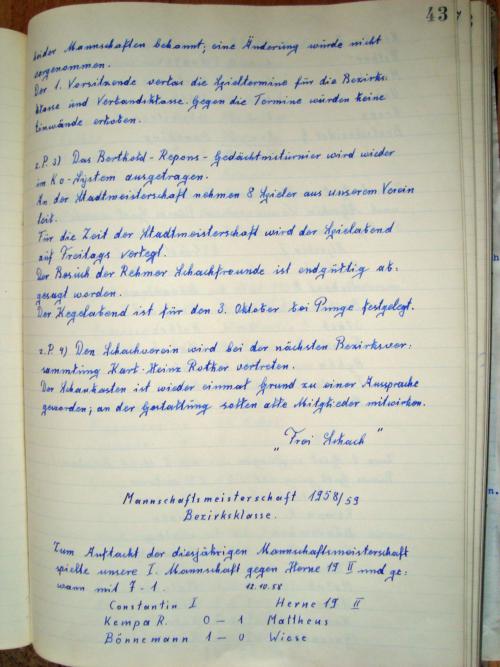 43
beider Mannschaften bekannt; eine Änderung wurde nicht
vorgenommen.
Der 1. Vorsitzende verlas die Spieltermine für die Bezirks-
klasse und Verbandsklasse. Gegen die Termine wurden keine
Einwände erhoben.
z. P. 3) Das Berthold-Repons-Gedächtnisturnier wird wieder
im Ko-System ausgetragen.
An der Stadtmeisterschaft nehmen 8 Spieler aus unserem Verein
teil.
Für die Zeit der Stadtmeisterschaft wird der Spielabend
auf Freitags verlegt.
Der Besuch der Rehmer Schachfreunde ist endgültig ab-
gesagt worden.
Der Kegelabend ist für den 3. Oktober bei Punge festgelegt.
z. P. 4) Den Schachverein wird bei der nächsten Bezirksver-
sammlung Karl-Heinz Rother vertreten.
Der Schaukasten ist wieder einmal Grund zu einer Aussprache
geworden; an der Gestaltung sollen alle Mitglieder mitwirken.
„Froi Schach"
Mannschaftsmeisterschaft 1958/59
Bezirksklasse.
Zum Auftackt der diesjährigen Mannschaftsmeisterschaft
spielte unsere I. Mannschaft gegen Herne 19 II und ge-
wann mit 7-1. 12.10.58
Constantin I Herne 19 II
Kempa R. 0 - 1 Mattheus
Bönnemann 1 - 0 Wiese